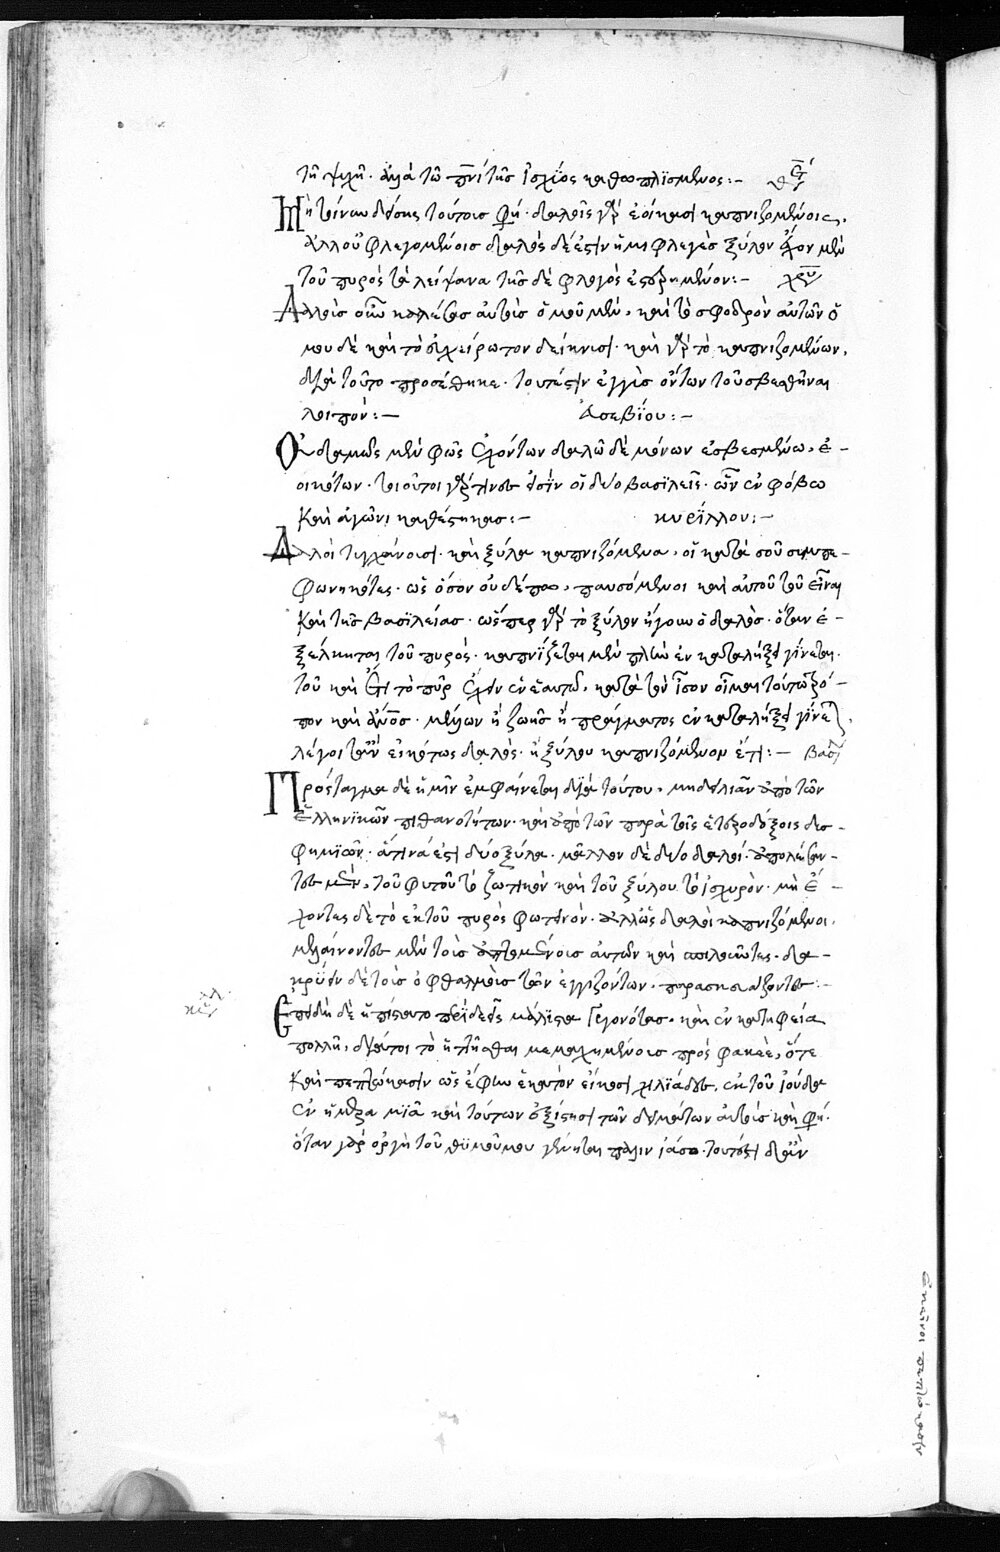 τῇ ψυχῇ· ἀλλὰ τῶ πνι τῆς ἰσχύος καθωπλισμένος:-
Μὴ τοίνυν δείσης τούτοις φη· δαλοῖς γὰρ ἐοίκασι καπνιζομένοις,
ἀλλ' οὐ φλεγομένοις δαλὸς δέ ἐστιν ἡμιφλεγὲς ξύλον ἔχον μὲν
τοῦ πυρὸς τὰ λείψανα τῆς δὲ φλογὸς ἐστερημένον:- χρυ
Δαλοὺς οὖν καλέσας αὐτοὺς ὁμοῦ μὲν, καὶ τὸ σφοδρὸν αὐτῶν ὁ
μοῦ δὲ καὶ τὸ εὐχείρωτον δείκνυσι· καὶ γὰρ τὸ καπνιζομένων,
διὰ τοῦτο προσέθηκε· τουτέστιν ἐγγὺς ὄντων τοῦ σβεσθῆναι
λοιπόν:- Εὐσεβίου:-
Οὐδαμῶς μὲν φῶς ἐχόντων δαλῶ δὲ μόνων ἐσβεσμένω, ἐ-
οικότων· τοιοῦτοι γάρ τινες εἰσὶν οἱ δύο βασιλεῖς· ὧν ἐν φόβω
καὶ ἀγωνι καθέστηκας:- κυρίλλου:-
Δαλοὶ τυγχάνουσι· καὶ ξύλα καπνιζόμενα, οἱ κατὰ σοῦ συμπε-
φωνηκότες· ὡς ὅσον οὐδέπω, παυσόμενοι καὶ αὐτοῦ τοῦ εἶναι
καὶ τῆς βασιλείας· ὥσπερ γὰρ τὸ ξύλον ἤγουν ὁ δαλὸς· ὅταν ἐ-
ξέλκηται τοῦ πυρὸς· καπνίζεται μὲν πλὴν ἐν καταλήξει γίνεται
τοῦ καὶ ἔτι τὸ πῦρ ἔχειν ἐν ἑαυτῶ, κατὰ τὸν ἴσον οἶμαι τοῦτον τρό-
πον καὶ ἄνος· μέλλων ἢ ζωῆς ἢ πράγματος ἐν καταλήξει γίνε
λέγοιτ' ἂν εἰκότως δαλὸς· ἢ ξύλον καπνιζόμενον ἔτι:- βασι
Πρόσταγμα δὲ ἡμῖν ἐμφαίνεται διὰ τούτου, μὴ δειλιᾶν ἀπὸ τῶν
ἑλληνικῶν πιθανοτήτων· καὶ ἀπὸ τῶν παρὰ τοῖς ἑτεροδόξοις
ἅτινά ἐστι δύο ξύλα· μᾶλλον δὲ δύο δαλοί· ἀπολέσαν-
τες μὲν, τοῦ φυτοῦ τὸ ζωτικὸν καὶ τοῦ ξύλου τὸ ἰσχυρὸν· μὴ ἔ-
χοντες δὲ τὸ ἐκ τοῦ πυρὸς φωτεινὸν· ἀλλ' ὡς δαλοὶ καπνιζόμενοι,
μελαίνοντες μὲν τοὺς ἁπτομένους αὐτῶν καὶ ἀσβολοῦντες· δα-
κρύειν δὲ τοὺς ὀφθαλμοὺς τῶν ἐγγιζόντων, παρασκευάζοντες:-
Ἐπειδὴ δὲ ἠπίστατο περιδεεῖς μάλιστα γεγονότας· καὶ ἐν κατηφεία
πολλῆ, διά τοι τὸ ἡττῆσθαι μεμαχημένοις πρὸς φακεὲ, ὅτε
καὶ πεπτώκασιν ὡς ἔφην ἑκατὸν εἴκοσι χιλιάδες, ἐκ τοῦ ἰούδα
ἐν ἡμέρα μιᾶ καὶ τούτων ἐξίστησι τῶν δειμάτων αὐτοὺς καὶ φη·
ὅταν γὰρ ὀργὴ τοῦ θυμοῦ μου γένηται πάλιν ἰάσομαι· τουτέστι